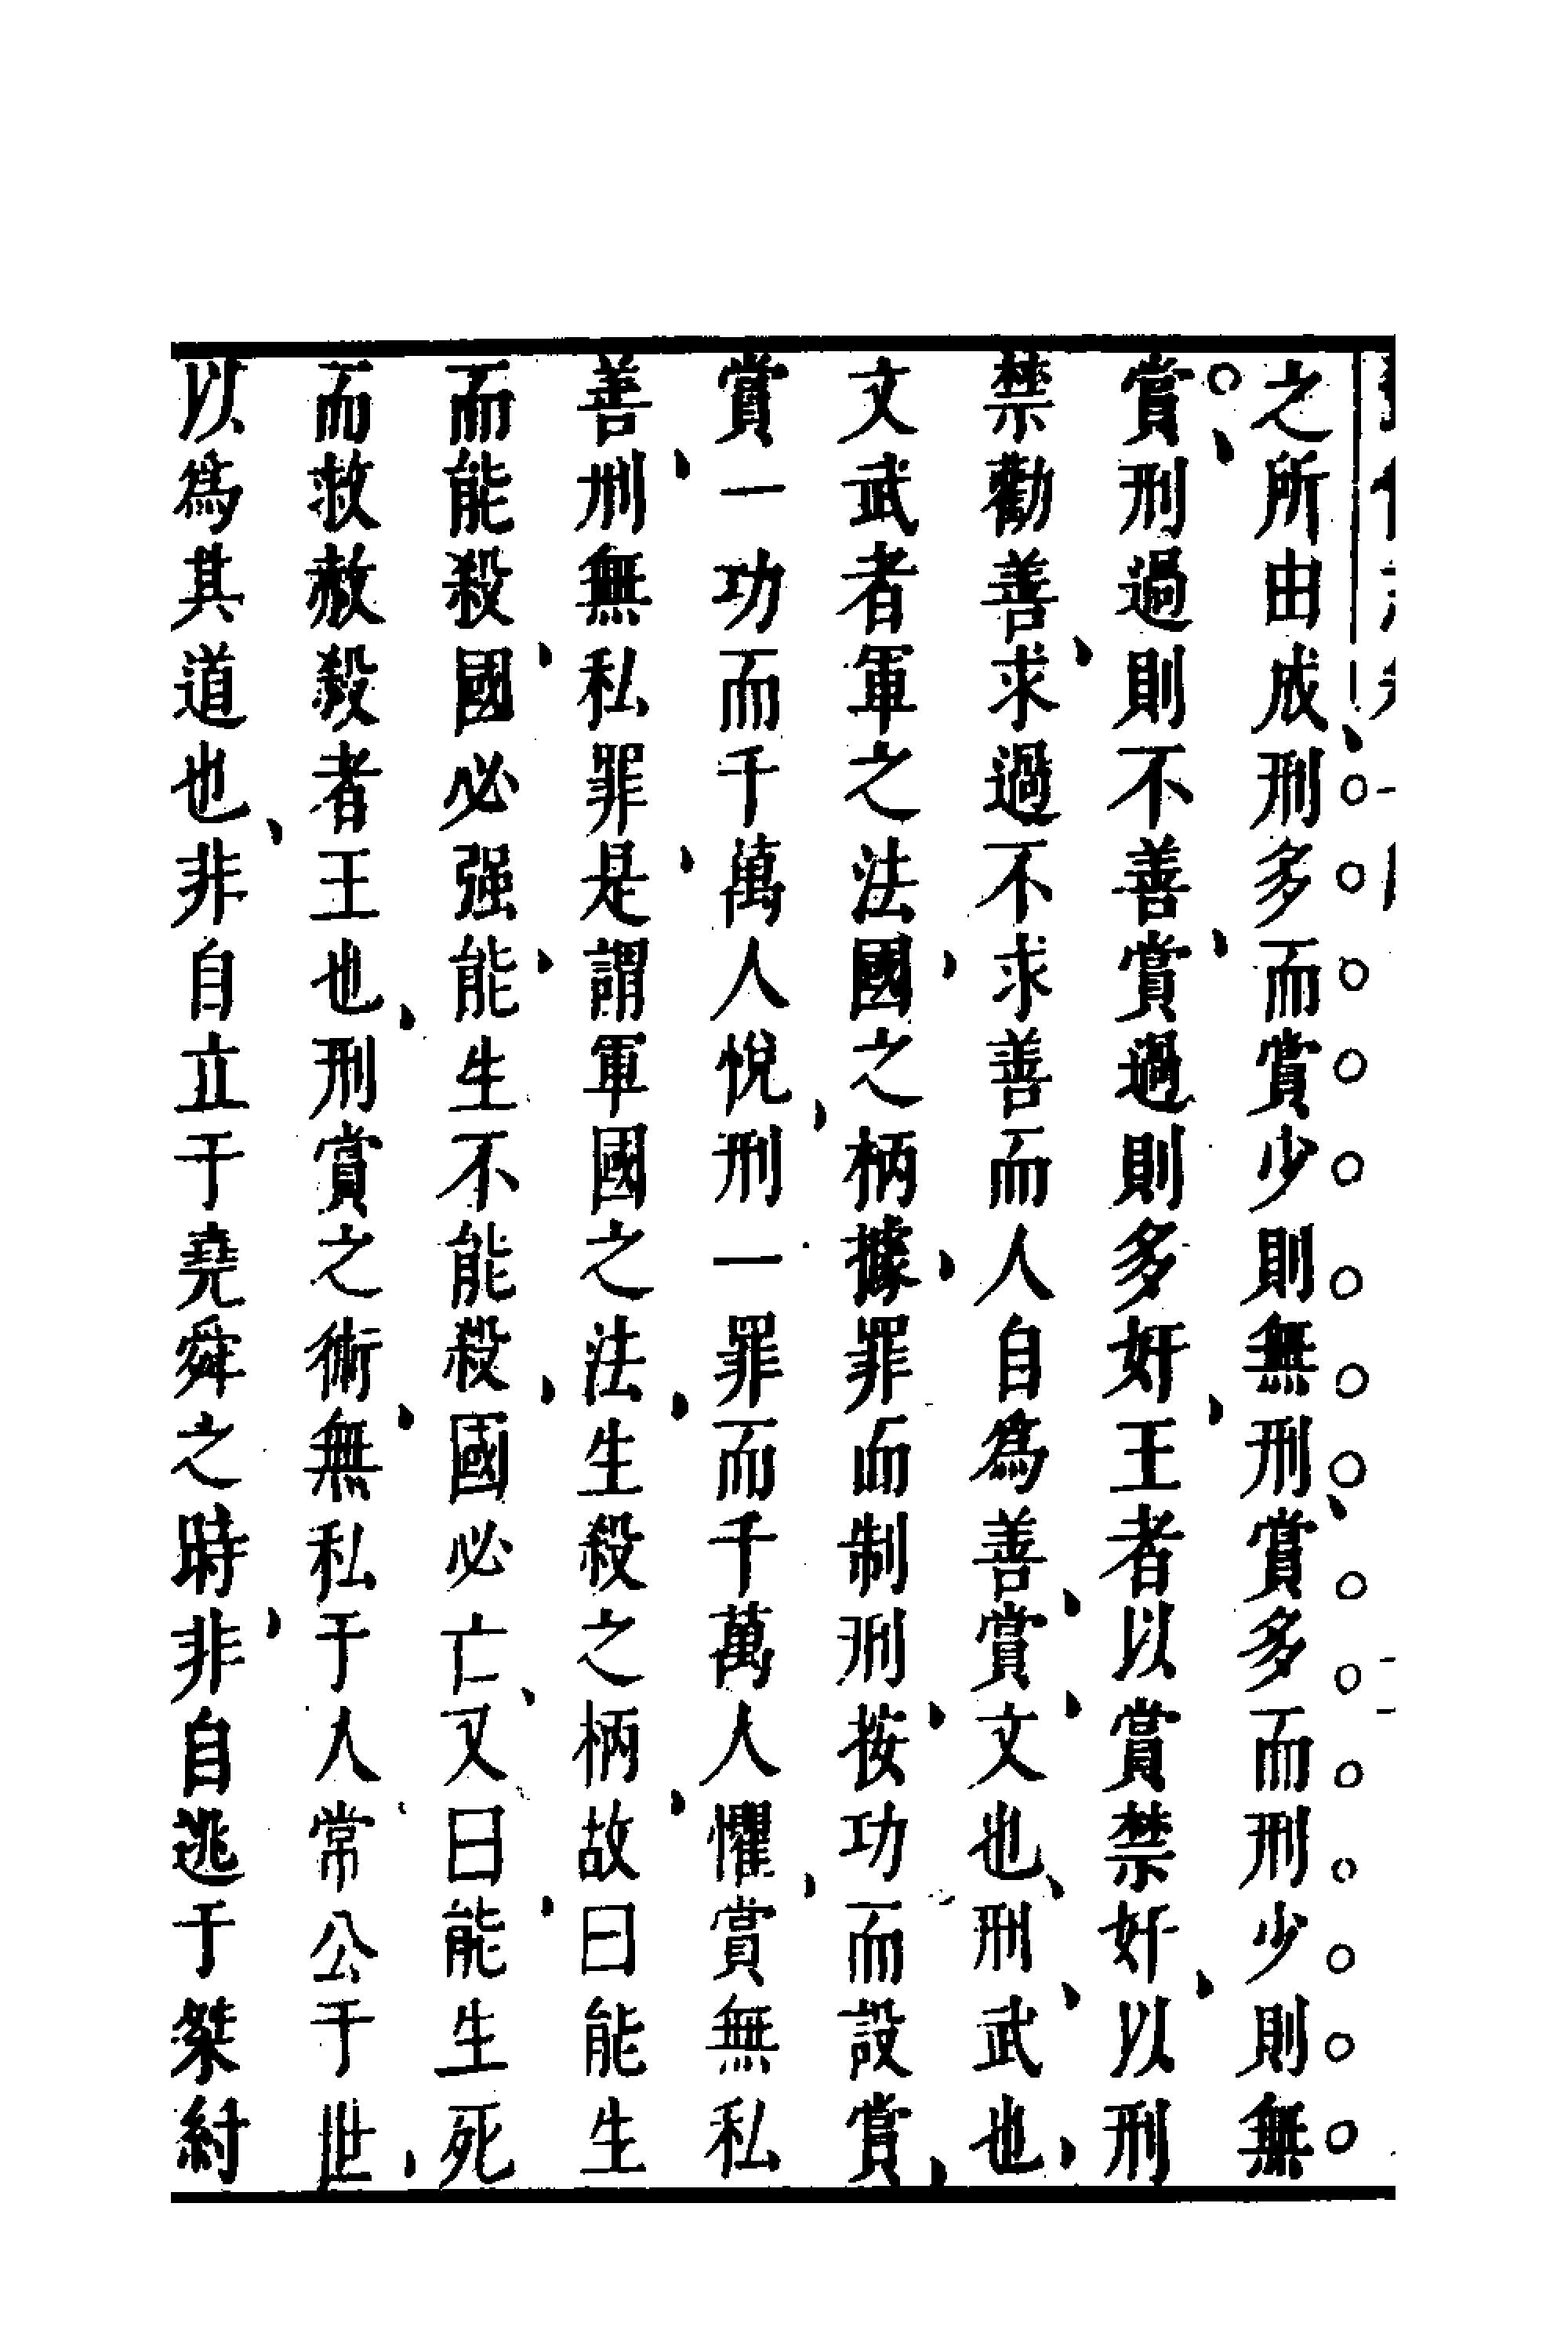 之所由成刑多而賞少則無刑賞多而刑少則無
賞刑過則不善賞過則多奸王者以賞禁奸以刑
禁勸善求過不求善而人自爲善賞文也刑武也
文武者軍之法國之柄據罪而制刑按功而設賞
賞一功而千萬人悅刑一罪而千萬人懼賞無私
善刑無私罪是謂軍國之法生殺之柄故曰能生
而能殺國必强能生不能殺國必亡又曰能生死
而救赦殺者王也刑賞之術無私于人常公于世
以爲其道也非自立于堯舜之時非自逃于桀紂